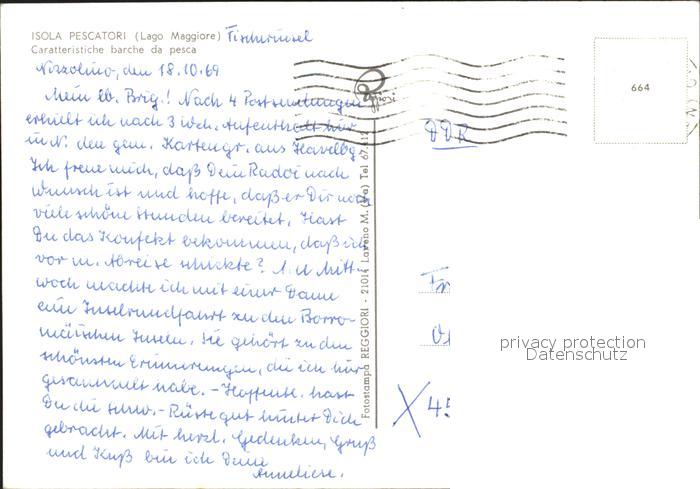 ISOLA PESCATORI (Lago Maggiore) Fischerinsel
Caratteristiche barche da pesca
den 18.10.69
Mein lb. Brig.! Nach 4 Postsendungen
erhielt ich nach 3 wch. Aufenthalt hier
in N. den gem. Kartengr. aus Havelbg.
Ich freue mich, daß Dein Radoi nach
Wunsch ist und hoffe, daß er Dir noch
viele schöne Stunden bereitet. Hast
Du das Konfekt bekommen, daß ich
vor m. Abreise schickte? A. d. Mitt-
woch machte ich mit einer Dame
eine Inselrundfahrt zu den Borro-
mäischen Inseln. Sie gehört zu den
schönsten Erinnerungen, die ich hier
gesammelt habe. - Hoffentl. hast
Du die schw. - Rüste gut hinter Dich
gebracht. Mit herzl. Gedenken, Gruß
und Kuß bin ich Deine
Anneliese.
Fotostampa REGGIORI - 21014 Laveno M. (Va) Tel
Reggiori
664
DDR
privacy protection
Datenschutz